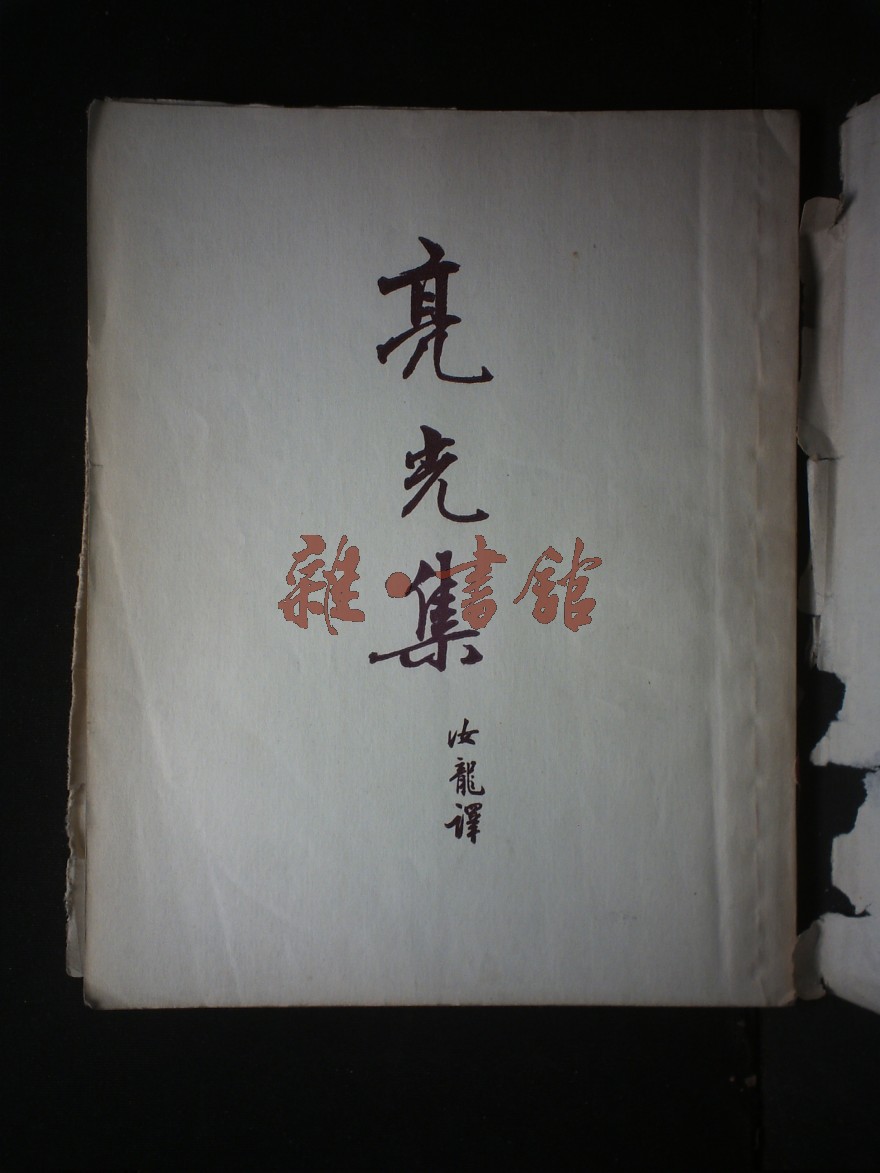 亮光集
汝龍譯
雜·書館